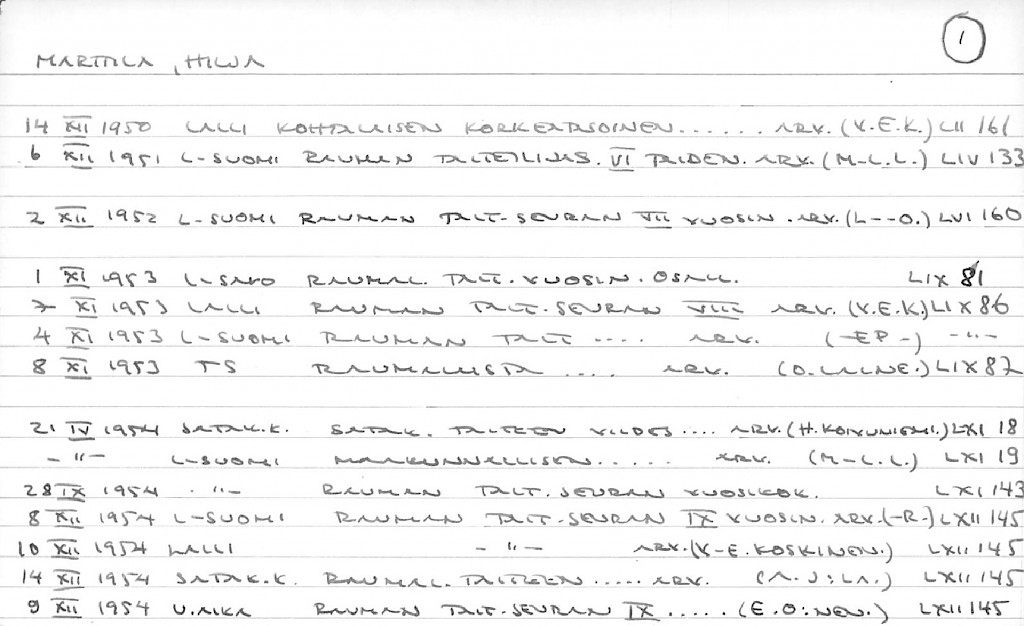 1
MARTTILA, HILJA
14 XII 1950 LALLI KOHTALAISEN KORKEATASOINEN...... ARV. (V.E.K.) LII 161
6 XII 1951 L-SUOMI RAUMAN TAITEILIJAS. VI TAIDEN. ARV. (M-L.L.) LIV 133
2 XII 1952 L-SUOMI RAUMAN TAIT-SEURAN VII VUOSIN. ARV. (L--O.) LVI 160
1 XI 1953 L-SAVO RAUMAL. TAIT. VUOSIN. OSALL. LIX 81
7 XI 1953 LALLI RAUMAN TAIT-SEURAN VIII ARV. (V.E.K.) LIX 86
4 XI 1953 L-SUOMI RAUMAN TAIT .... ARV. (-EP-) -"-
8 XI 1953 TS RAUMALAISTA .... ARV. (O. LAINE.) LIX 87
21 IV 1954 SATAK.K. SATAK. TAITEEN VIIDES .... ARV. (H. KOIVUNIEMI.) LXI 18
-"- L-SUOMI MAAKUNNALLISEN..... ARV. (M-L.L.) LXI 19
28 IX 1954 -"- RAUMAN TAIT. SEURAN VUOSIKOK. LXI 143
8 XII 1954 L-SUOMI RAUMAN TAIT-SEURAN IX VUOSIN. ARV. (-R-) LXII 145
10 XII 1954 LALLI -"- ARV. (V-E. KOSKINEN.) LXII 145
14 XII 1954 SATAK.K. RAUMAL. TAITEEN ..... ARV. (A. J:LA.) LXII 145
9 XII 1954 U.AIKA RAUMAN TAIT-SEURAN IX ..... (E. O:NEN.) LXII 145